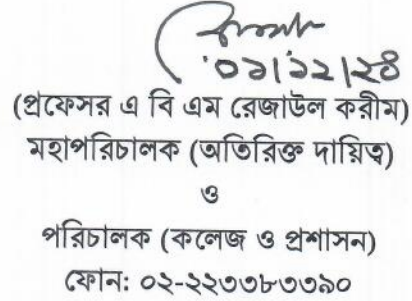 ০১|১২|২৪
(প্রফেসর এ বি এম রেজাউল করীম)
মহাপরিচালক (অতিরিক্ত দায়িত্ব)
ও
পরিচালক (কলেজ ও প্রশাসন)
ফোন: ০২-২২৩৩৮৩৩৯০